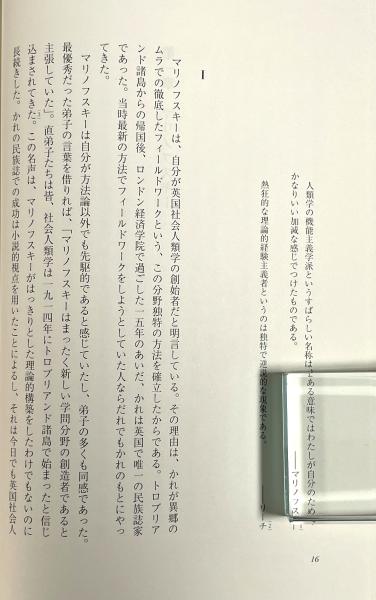 人類学の機能主義学派というすばらしい名称はある意味ではわたしが自分のため
かなりいい加減な感じでつけたものである。
――マリノフスキー
熱狂的な理論的経験主義者というのは独特で逆説的な現象である。
リーチ
I
マリノフスキーは、自分が英国社会人類学の創始者だと明言している。その理由は、かれが異郷の
ムラでの徹底したフィールドワークという、この分野独特の方法を確立したからである。トロブリア
ンド諸島からの帰国後、ロンドン経済学院で過ごした一五年のあいだ、かれは英国で唯一の民族誌家
であった。当時最新の方法でフィールドワークをしようとしていた人ならだれでもかれのもとにやっ
てきた。
マリノフスキーは自分が方法論以外でも先駆的であると感じていたし、弟子の多くも同感であった。
最優秀だった弟子の言葉を借りれば、「マリノフスキーはまったく新しい学問分野の創造者であると
主張していた」。直弟子たちは皆、社会人類学は一九一四年にトロブリアンド諸島で始まったと信じ
込まされてきた。この名声は、マリノフスキーがはっきりとした理論的構築をしたわけでもないのに
長続きした。かれの民族誌での成功は小説的視点を用いたことによるし、それは今日でも英国社会人
16